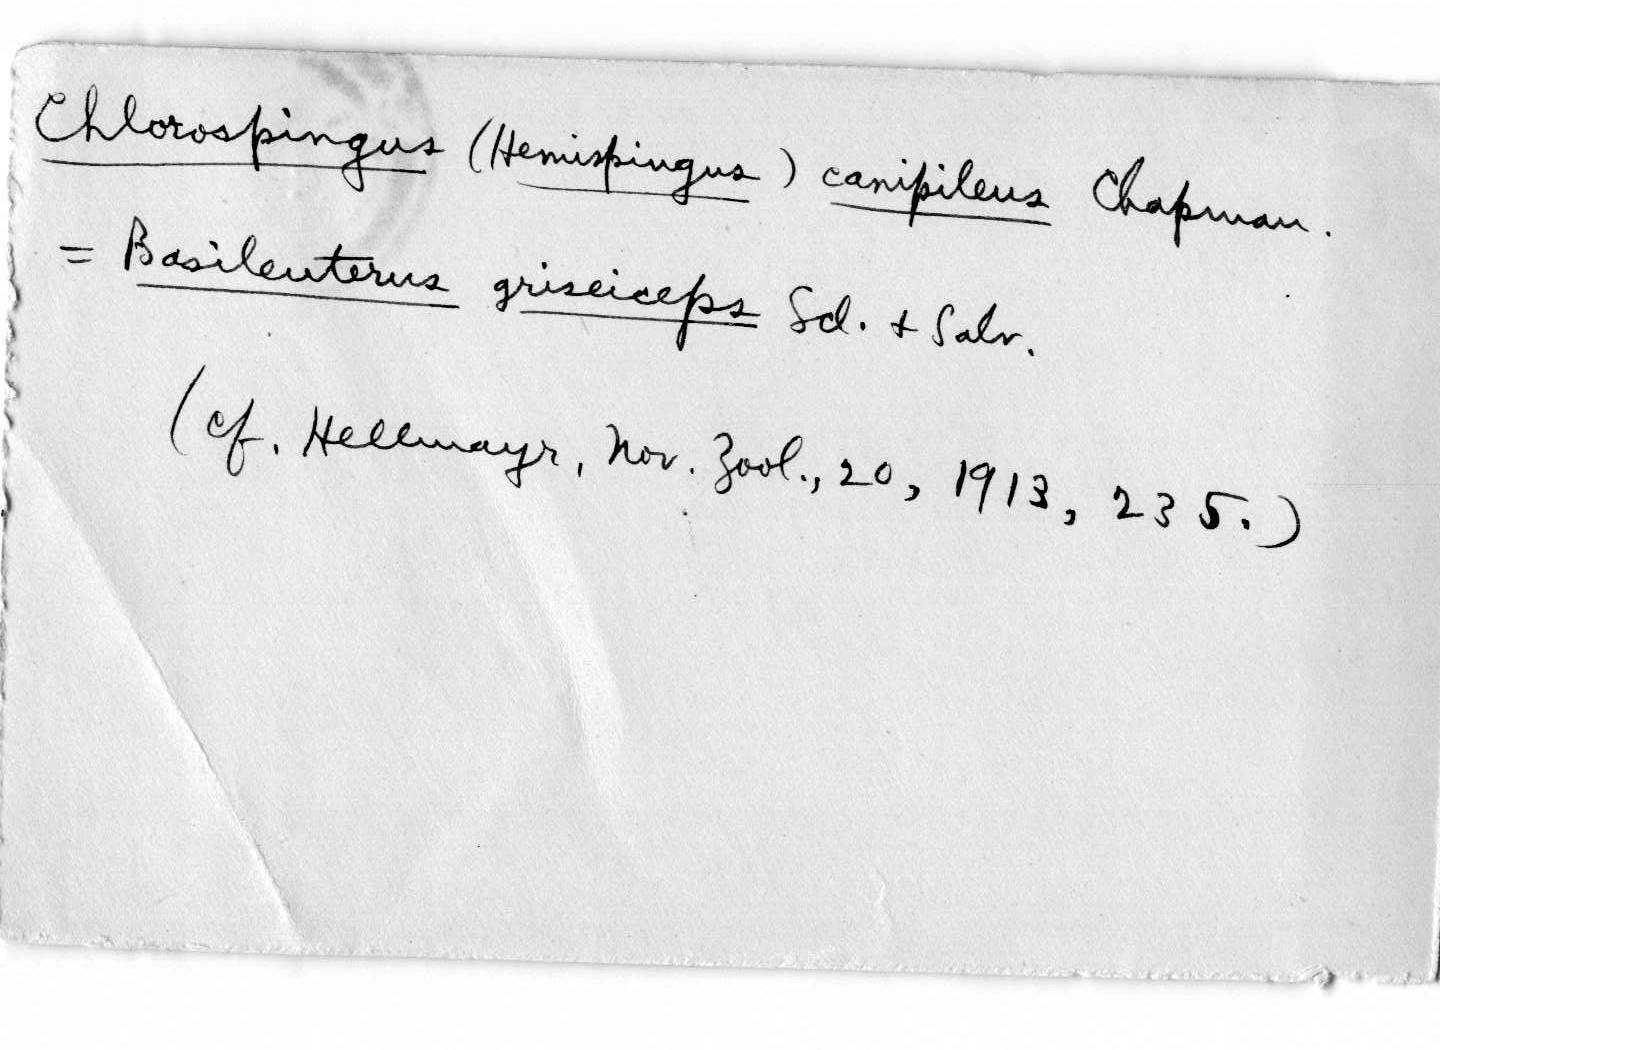 Chlorospingus (Hemispingus) canipileus Chapman.
= Basileuterus griseiceps Scl. + Salv.
(cf. Hellmayr, Nov. Zool., 20, 1913, 235.)